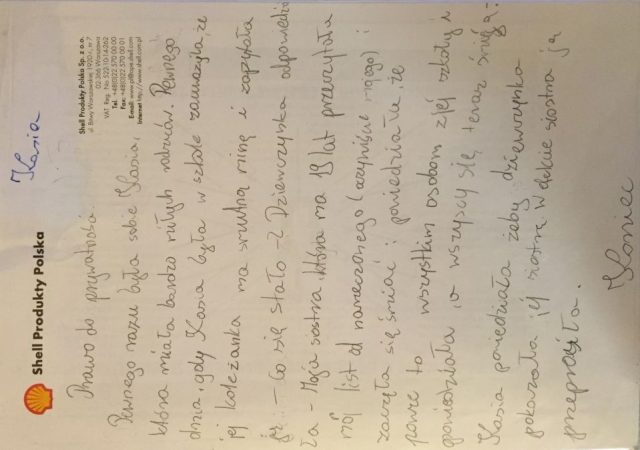 Kasia
Shell Produkty Polska
Shell Produkty Polska Sp. z o.o.
ul. Bitwy Warszawskiej 1920 r. nr 7
02-366 Warszawa
VAT Reg. No 522-10-14-262
Tel. +48(0)22 570 00 00
Fax: +48(0)22 570 00 01
Internet http://www.shell.com.pl
Prawo do prywatności.
Pewnego razu była sobie Kasia,
która miała bardzo miłych rodziców. Pewnego
dnia, gdy Kasia była w szkole zauważyła, że
jej koleżanka ma smutną minę i zapytała
ją: - Co się stało -? Dziewczynka odpowiedzia
ła - Moja sostra, która ma 19 lat przeczytała
mój list od nażeczonego (oczywiście mojego) i
zaczęła się śmiać i powiedziała, że
powie to wszystkim osobom z jej szkoły i
powiedziała, a wszyscy się teraz śmieją.
Kasia powiedziała żeby dziewczynka
pokazała jej siostrę w efekcie siostra ją
przeprosiła.
Koniec